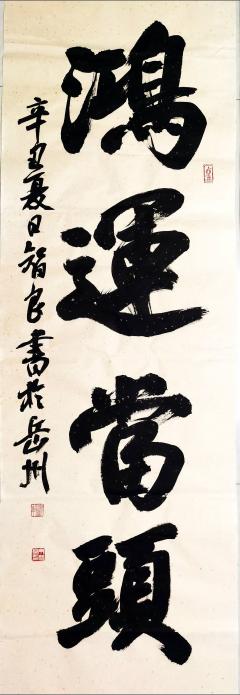 鴻運當頭
辛丑夏日智良書於岳州